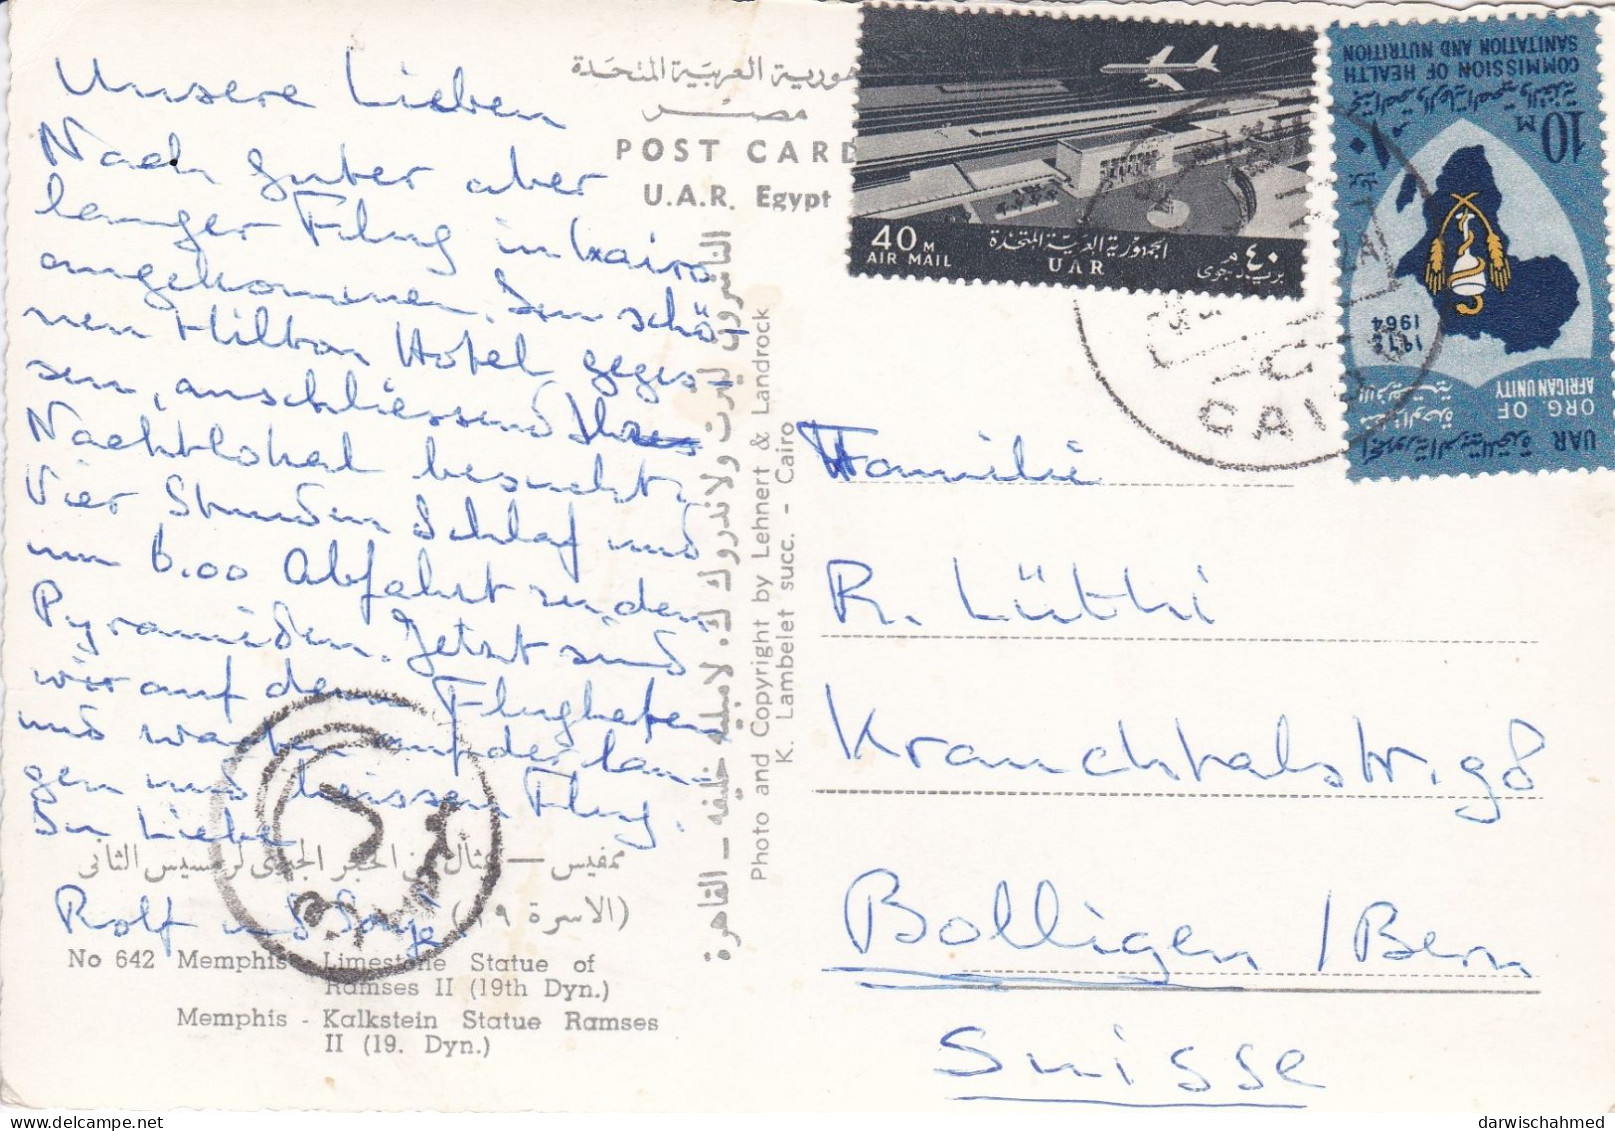 Unsere Lieben
Nach guter aber
langer Flug in Kairo
angekommen. Im schö-
nen Hilton Hotel geges-
sen, anschliessend
Nachtlokal besucht,
Vier Stunden Schlaf und
um 6.00 Abfahrt zu den
Pyramiden. Jetzt sind
wir auf dem Flughafen
und warten auf den lan-
gen und heissen Flug.
In Liebe
Rolf und Sonja
الجمهورية العربية المتحدة
مصر
POST CARD
U.A.R. Egypt
ممفيس — تمثال من الحجر الجيرى لرمسيس الثانى
(الاسرة ١٩)
No 642 Memphis - Limestone Statue of
Ramses II (19th Dyn.)
Memphis - Kalkstein Statue Ramses
II (19. Dyn.)
الناشرون ليرت ولاندروك ك. لامبليه خليفه – القاهرة
Photo and Copyright by Lehnert & Landrock
K. Lambelet succ. - Cairo
40 M
AIR MAIL
الجمهورية العربية المتحدة
UAR
٤٠ م
بريد جوى
COMMISSION OF HEALTH
SANITATION AND NUTRITION
10 M
1964
UAR
ORG. OF
AFRICAN UNITY
الجمهورية العربية المتحدة
CAIRO
Familie
R. Lüthi
Krauchtalstr. 98
Bolligen / Bern
Suisse
darwischahmed